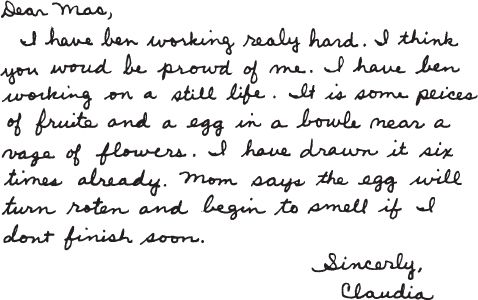 Dear Mae,
I have ben working realy hard. I think
you woud be prowd of me. I have ben
working on a still life. It is some peices
of fruite and a egg in a bowle near a
vage of flowers. I have drawn it six
times already. Mom says the egg will
turn roten and begin to smell if I
dont finish soon.
Sincerly,
Claudia